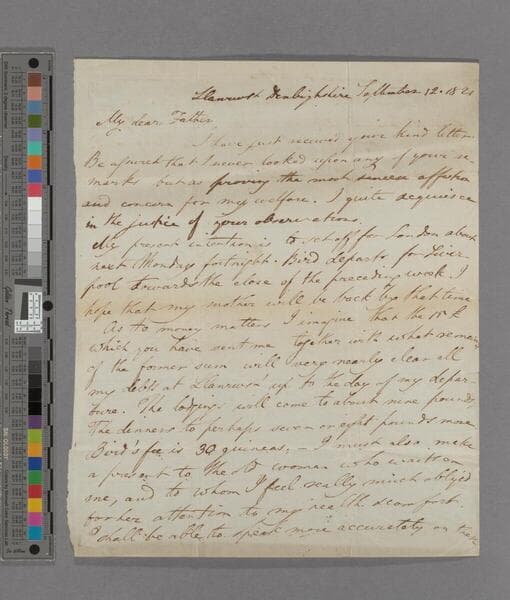 Llanrwst Denbighshire September 12. 1821
My dear Father
I have just received your kind letter.
Be assured that I never looked upon any of your re-
marks but as proving the most sincere affection
and concern for my welfare. I quite acquiesce
in the justice of your observations.
My present intention is to set off for London about
next Monday fortnight. Bird departs for Liver-
pool towards the close of the preceding week. I
hope that my mother will be back by that time
As to money matters I imagine that the 15 £
which you have sent me together with what remains
of the former sum will very nearly clear all
my debts at Llanrwst up to the day of my depar-
ture. The lodgings will come to about nine pounds
The dinners to perhaps seven or eight pounds more
Bird's fee is 30 guineas, - I must also make
a present to the old woman who waits on
one, and to whom I feel really much obliged
for her attention to my health & comfort
I shall be able to speak more accurately on these